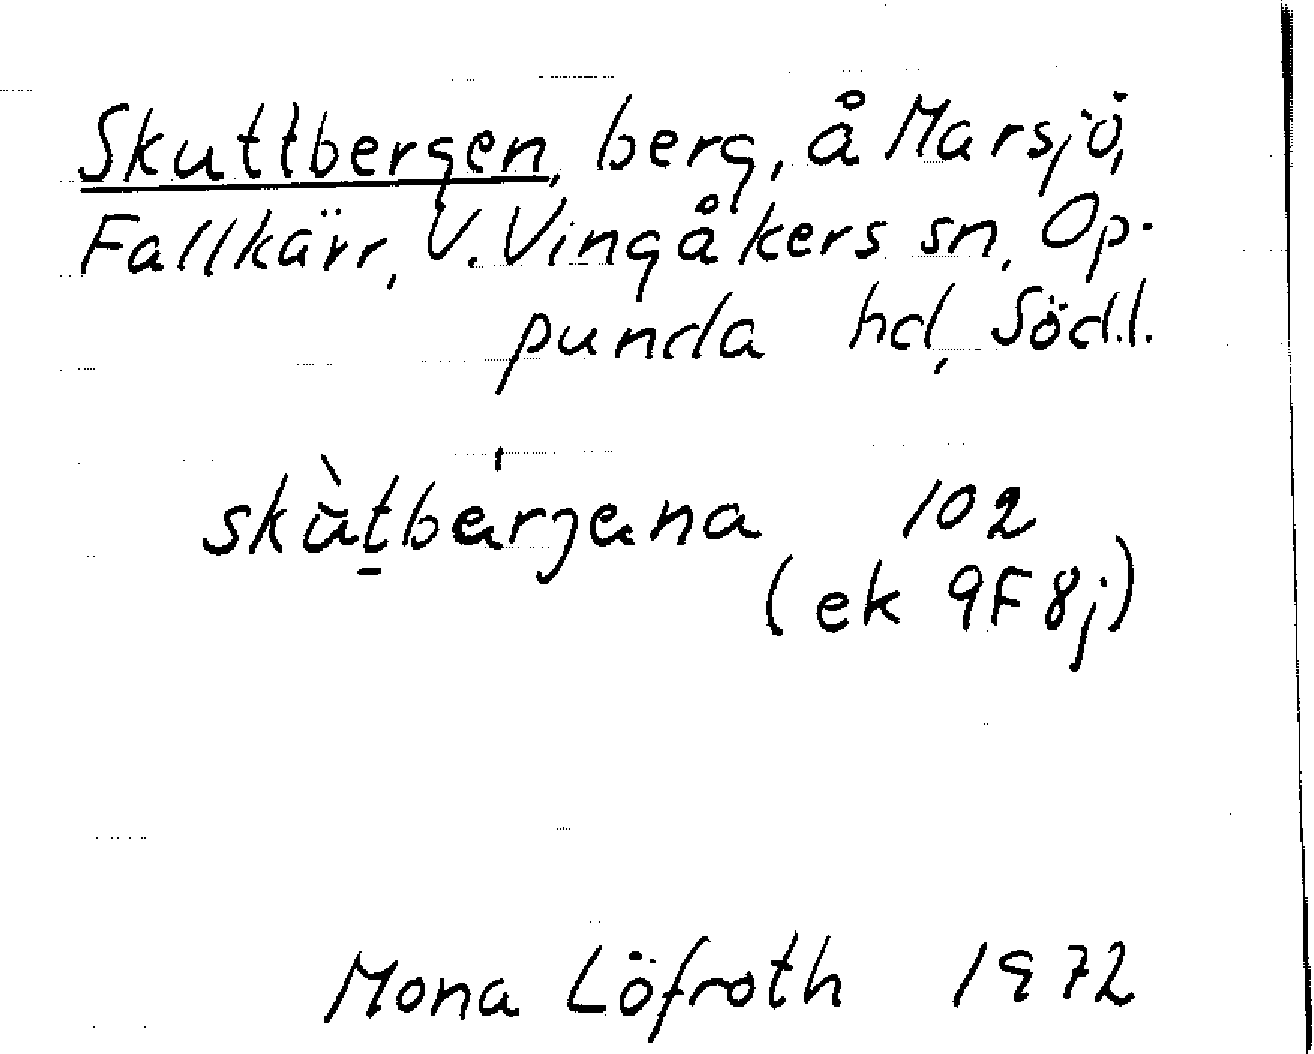 Skuttbergen, berg, å Marsjö,
Fallkärr, V. Vingåkers sn, Op-
punda hd, Södl.
skùtbärjena 102
(ek 9F 8j)
Mona Löfroth 1972